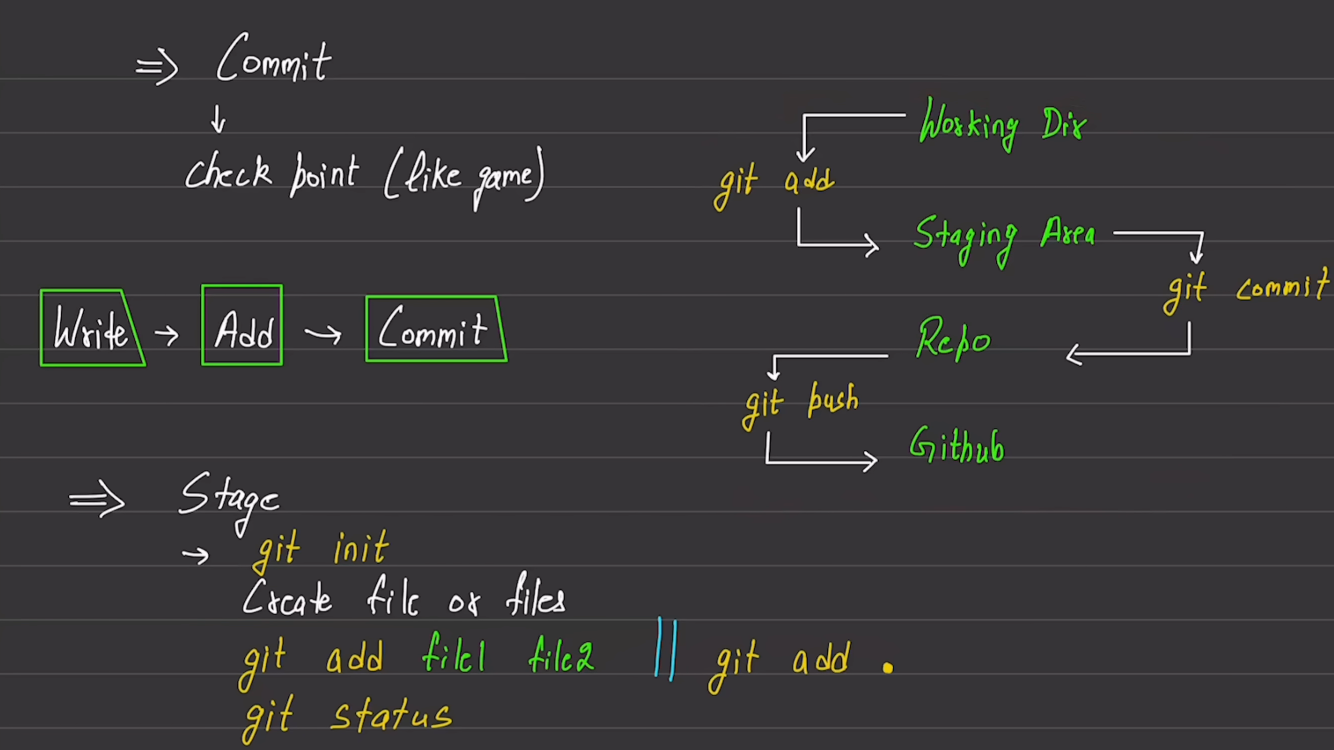 ⇒ Commit
↓
check point (like game)
Write → Add → Commit
Working Dir
git add
Staging Area
git commit
Repo
git push
Github
⇒ Stage
→ git init
Create file or files
git add file1 file2 || git add .
git status